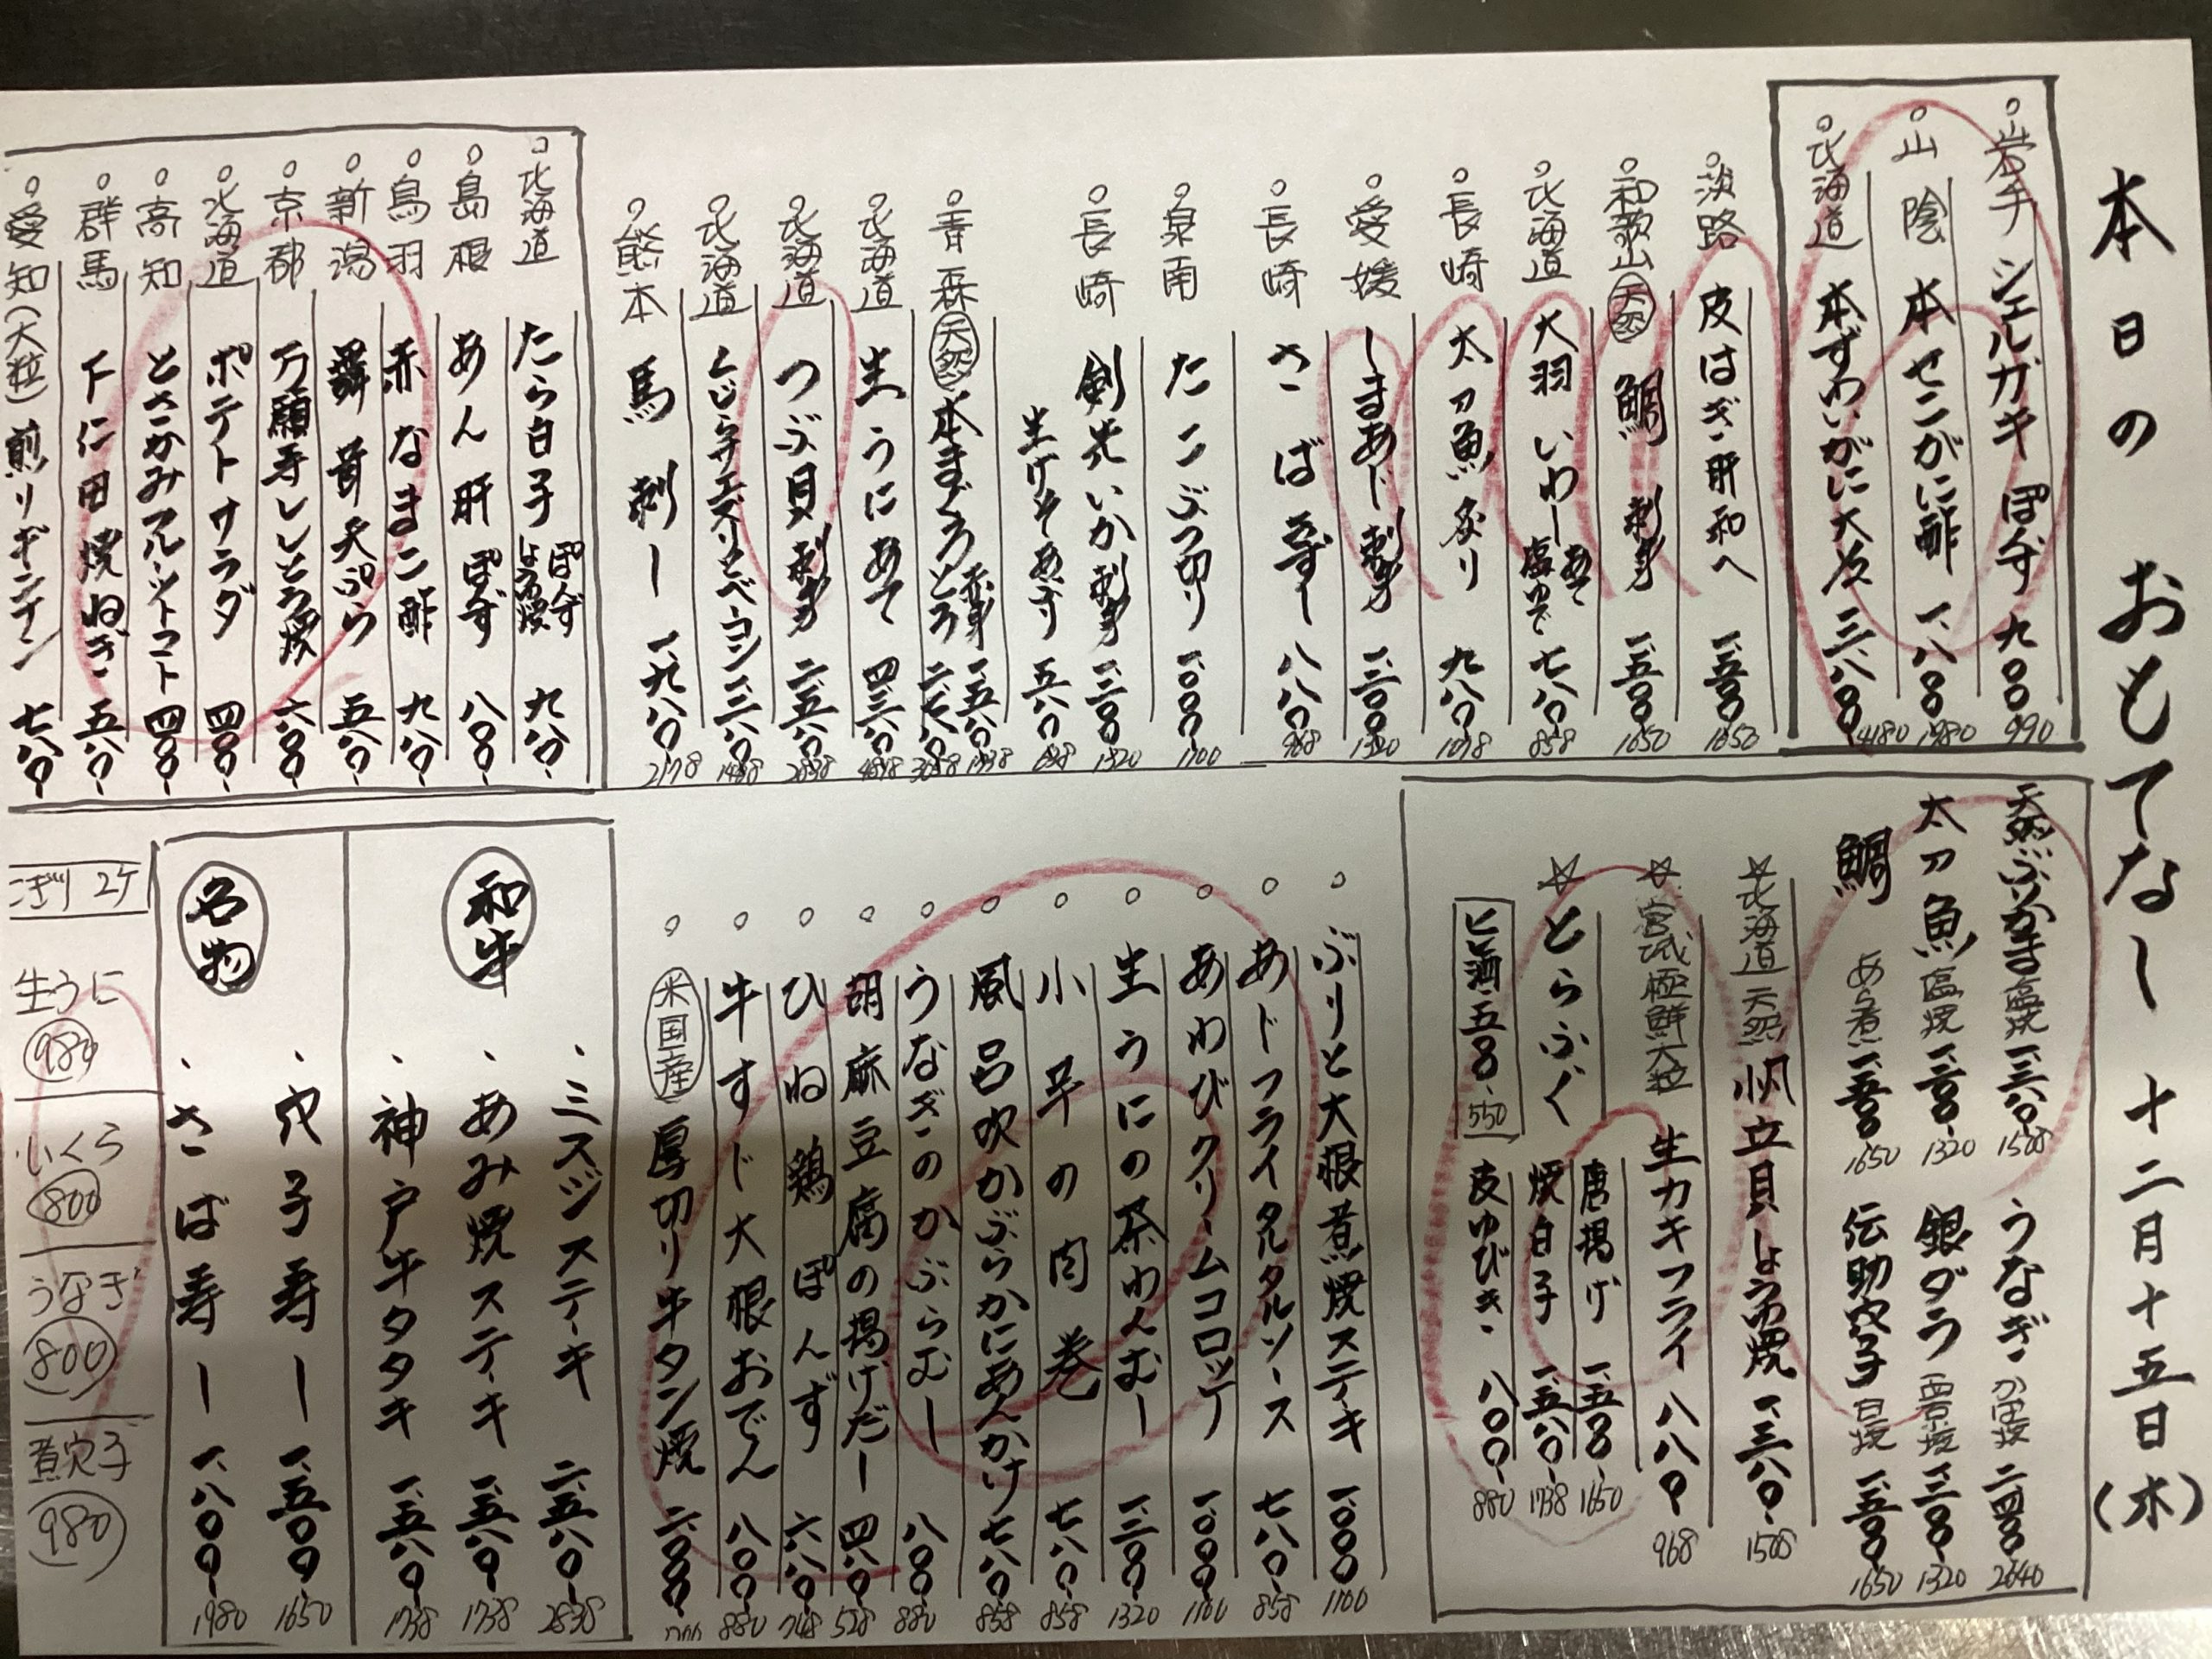 本日の おもてなし 十二月十五日(木)
岩手 シェルガキ ぽんず 九〇〇 990
山陰 本せこがに酢 一、八〇〇 1980
北海道 本ずわいがに大 三、八〇〇 4180
淡路 皮はぎ 肝和へ 一、五〇〇 1650
和歌山 天然 鯛 刺身 一、五〇〇 1650
北海道 大羽いわし あて 塩ゆで 七八〇 858
長崎 太刀魚 炙り 九八〇 1078
愛媛 しまあじ 刺身 一、二〇〇 1320
長崎 さば きずし 八八〇 968
泉南 たこぶつ切り 一、〇〇〇 1100
長崎 剣先いか 刺身 一、二〇〇 1320
生げそ あぶり 五八〇 638
青森 天然 本まぐろ 赤身 一、五八〇 1738
とろ 二、七八〇 3058
北海道 生うに あて 四、三八〇 4818
北海道 つぶ貝 刺身 二、五八〇 2838
北海道 くじら さえずりとベーコン 一、三八〇
熊本 馬刺し 一、九八〇 2178
北海道 たら白子 ぽんず しょうゆ焼 九八〇
島根 あん肝 ぽんず 八〇〇
鳥羽 赤なまこ酢 九八〇
新潟 舞茸天ぷら 五八〇
京都 万願寺ししとう焼 六〇〇
北海道 ポテトサラダ 四〇〇
高知 とさかみフルーツトマト 四〇〇
群馬 下仁田焼ねぎ 五八〇
愛知(大粒) 煎りギンナン 七八〇
天然ぶりかま 塩焼 一、三八〇 1508 うなぎ かば焼 二、四〇〇 2640
太刀魚 塩焼 一、二〇〇 1320 銀ダラ 西京焼 一、二〇〇 1320
鯛 あら煮 一、五〇〇 1650 伝助穴子 白焼 一、五〇〇 1650
☆北海道 天然 帆立貝しょうゆ焼 一、三八〇 1508
☆宮城極鮮大粒 生カキフライ 八八〇 968
☆とらふぐ 唐揚げ 一、五〇〇 1650
焼白子 一、五八〇 1738
ヒレ酒 五〇〇 550 皮ゆびき 八〇〇 880
ぶりと大根煮焼ステーキ 一、〇〇〇 1100
あじフライタルタルソース 七八〇 858
あわびクリームコロッケ 一、〇〇〇 1100
生うにの茶わんむし 一、二〇〇 1320
小芋の肉巻 七八〇 858
風呂吹かぶらかにあんかけ 七八〇 858
うなぎのかぶらむし 八〇〇 880
胡麻豆腐の揚げだし 四八〇 528
ひね鶏ぽんず 六八〇 748
牛すじ大根おでん 八〇〇 880
米国産 厚切り牛タン焼 二、〇〇〇
和牛
・三スジステーキ 二、五八〇 2838
・あみ焼ステーキ 一、五八〇 1738
・神戸牛タタキ 一、五八〇 1738
名物
・穴子寿し 一、五〇〇 1650
・さば寿し 一、八〇〇 1980
にぎり 2ケ
生うに 980
いくら 800
うなぎ 800
煮穴子 980